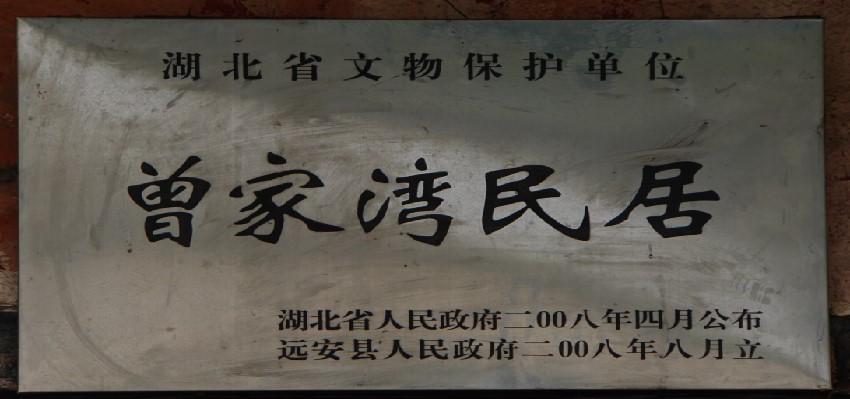 湖北省文物保护单位
曾家湾民居
湖北省人民政府二00八年四月公布
远安县人民政府二00八年八月立